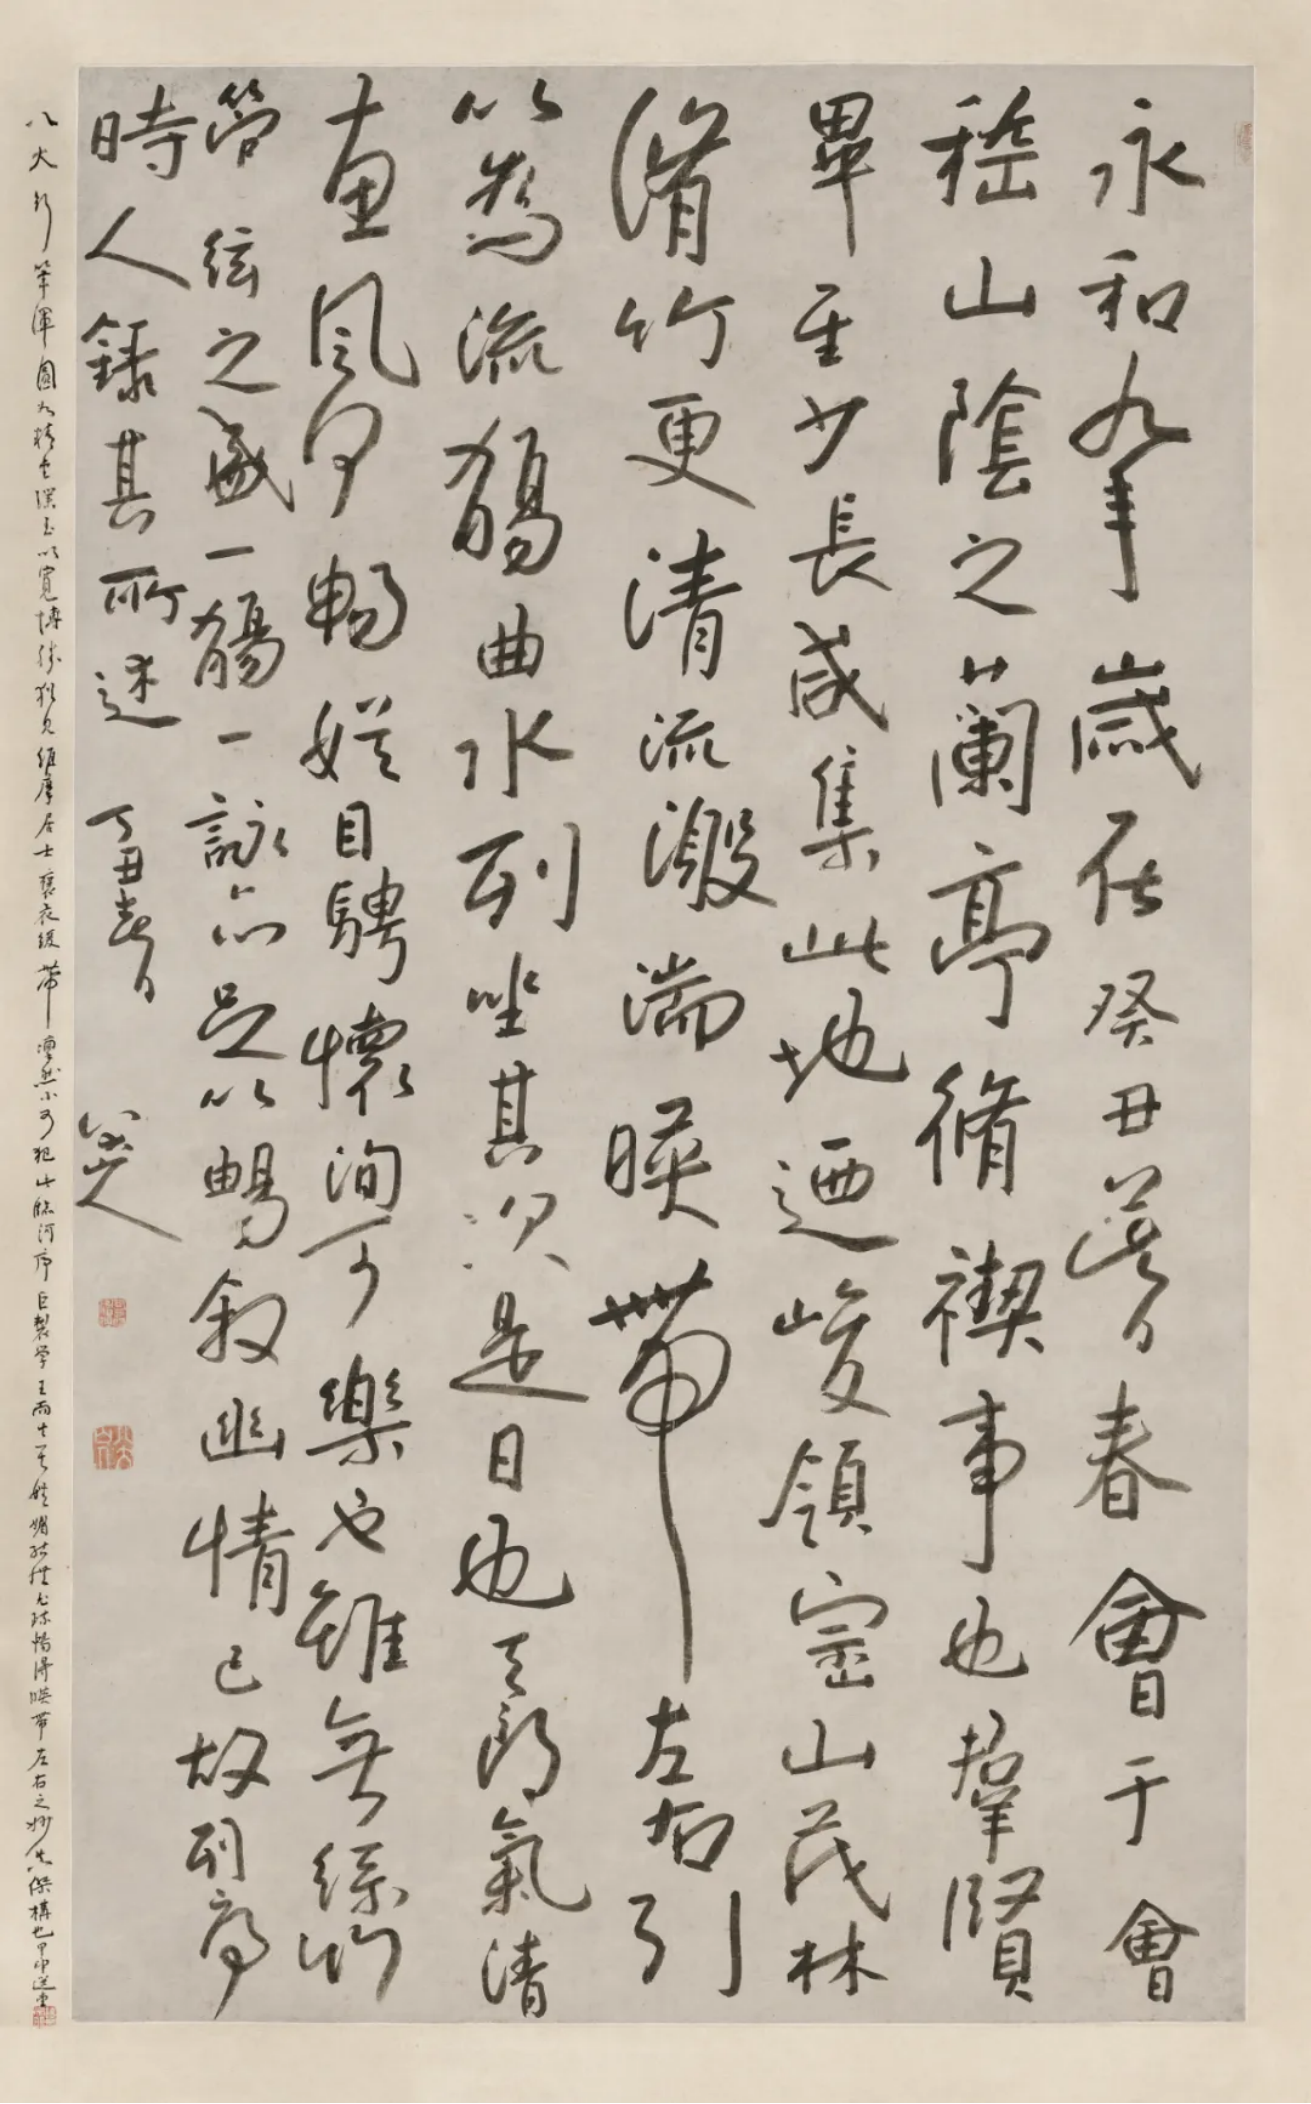 永和九年歲在癸丑暮春會于會
稽山陰之蘭亭脩禊事也羣賢
畢至少長咸集此地迺峻領崇山茂林
脩竹更清流激湍暎帶左右引
以為流觴曲水列坐其次是日也天朗氣清
惠風和暢娛目騁懷洵可樂也雖無絲竹
管絃之盛一觴一詠亦足以暢敘幽情已故列序
時人錄其所述 丁丑春日 八大山人
八大行筆渾圓如精金璞玉以寬博勝猶見維摩居士褒衣緩帶凜然不可犯此臨河序巨製學王而 媚 暢得暎帶左右之妙 傑構也甲申選堂